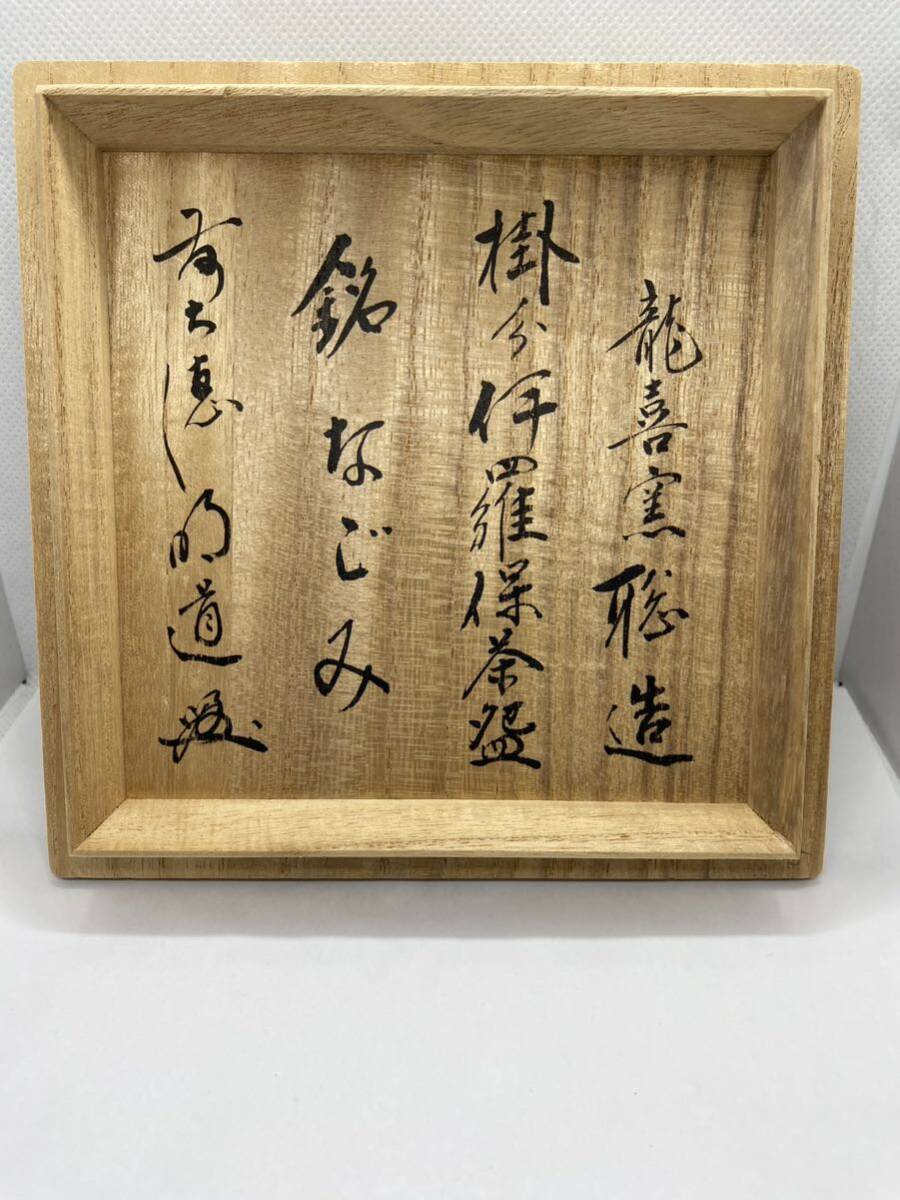 龍喜窯 聡造
掛分伊羅保茶盌
銘 なごみ
前大徳 明道